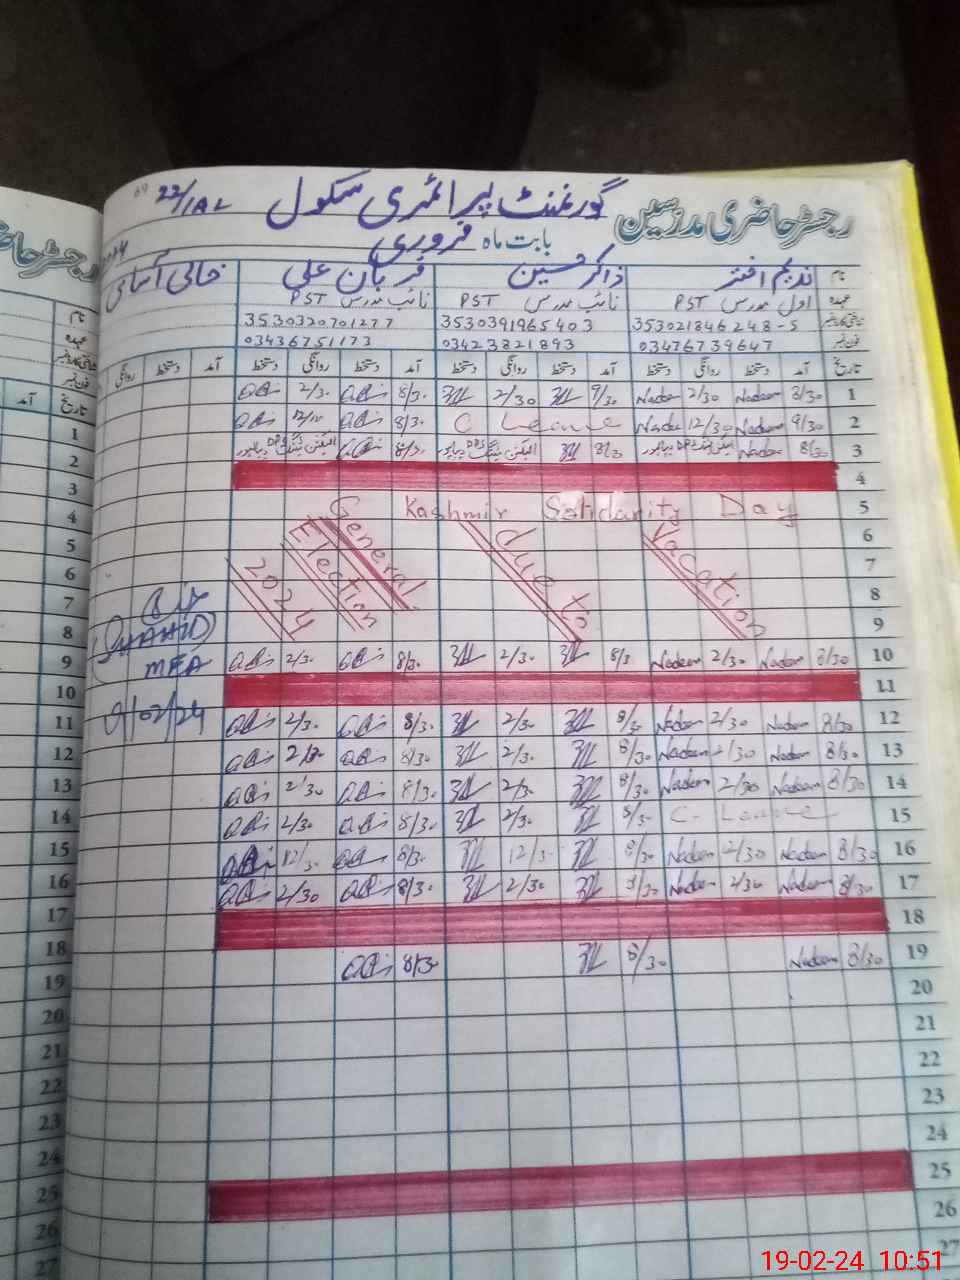 رجسٹر حاضری مدرسین گورنمنٹ پرائمری سکول 22/1AL
69
بابت ماہ فروری
نام ندیم اختر ذاکر حسین قربان علی خالی آسامی
عہدہ اول مدرس PST نائب مدرس PST نائب مدرس PST
شناختی کارڈ نمبر 353021846248-5 3530391965403 3530320701277
فون نمبر 03476739647 03423821893 03436751173
تاریخ آمد دستخط روانگی دستخط آمد دستخط روانگی دستخط آمد دستخط روانگی دستخط آمد دستخط روانگی
1 8/30 Nadeem 2/30 Nadeem 9/30 2/30 8/30 2/30
2 9/30 Nadeem 12/30 Nadeem C Leave 8/30
3 8/30 Nadeem الیکشن ٹریننگ DPS دیپالپور 8/30 الیکشن ٹریننگ DPS دیپالپور الیکشن ٹریننگ DPS دیپالپور
4
5 Kashmir Solidarity Day
6
7
8
9
Vacation due to General Election 2024
10 8/30 Nadeem 2/30 Nadeem 8/3 2/30 8/30 2/30
11
12 8/30 Nadeem 2/30 Nadeem 8/30 2/30 8/30 2/30
13 8/30 Nadeem 2/30 Nadeem 8/30 2/30 8/30 2/30
14 8/30 Nadeem 2/30 Nadeem 8/30 2/30 8/30 2/30
15 C-Leave 8/30 2/30 8/30 2/30
16 8/30 Nadeem 12/30 Nadeem 8/30 12/30 8/30 12/30
17 8/30 Nadeem 2/30 Nadeem 8/30 2/30 8/30 2/30
18
19 8/30 Nadeem 8/30 8/30
20
21
22
23
24
25
26
27
(SHAHID)
MEA
9/02/24
رجسٹر حا
نام
عہدہ
شناختی کارڈ نمبر
فون نمبر
تاریخ آمد
1
2
3
4
5
6
7
8
9
10
11
12
13
14
15
16
17
18
19
20
21
22
23
24
25
26
27
19-02-24 10:51